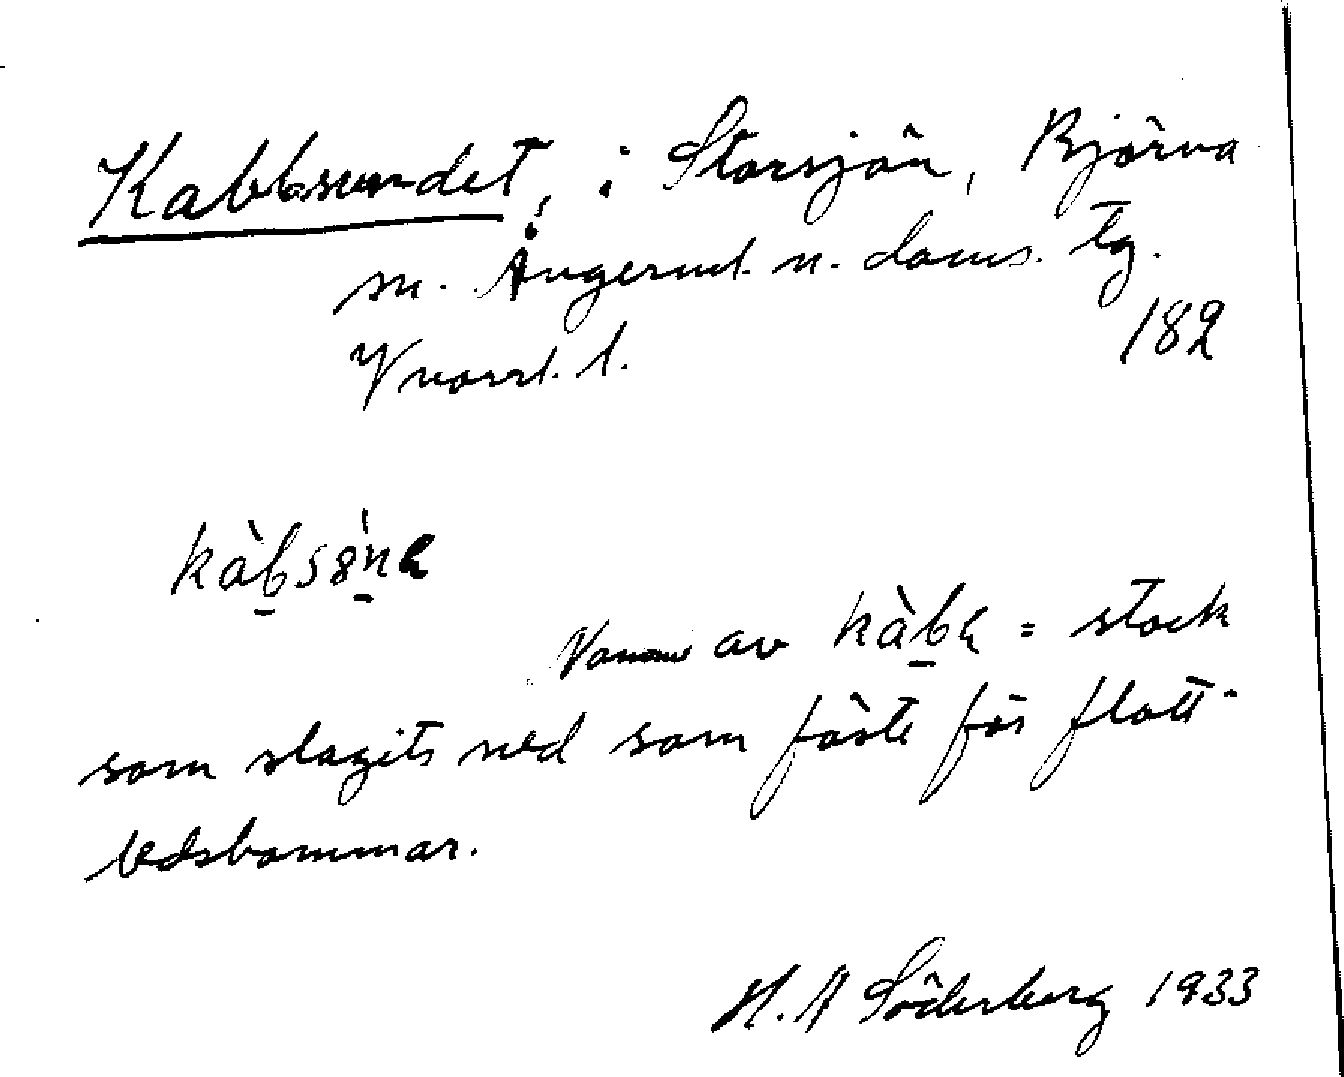 Kabbsundet, i Storsjön, Björna
sn. Ångerml. n. doms. tg.
Vnorrl. l. 182
kàbsön
av kàb = stock
som slagits ned som fäste för flott-
ledsbommar.
H. A Söderberg 1933